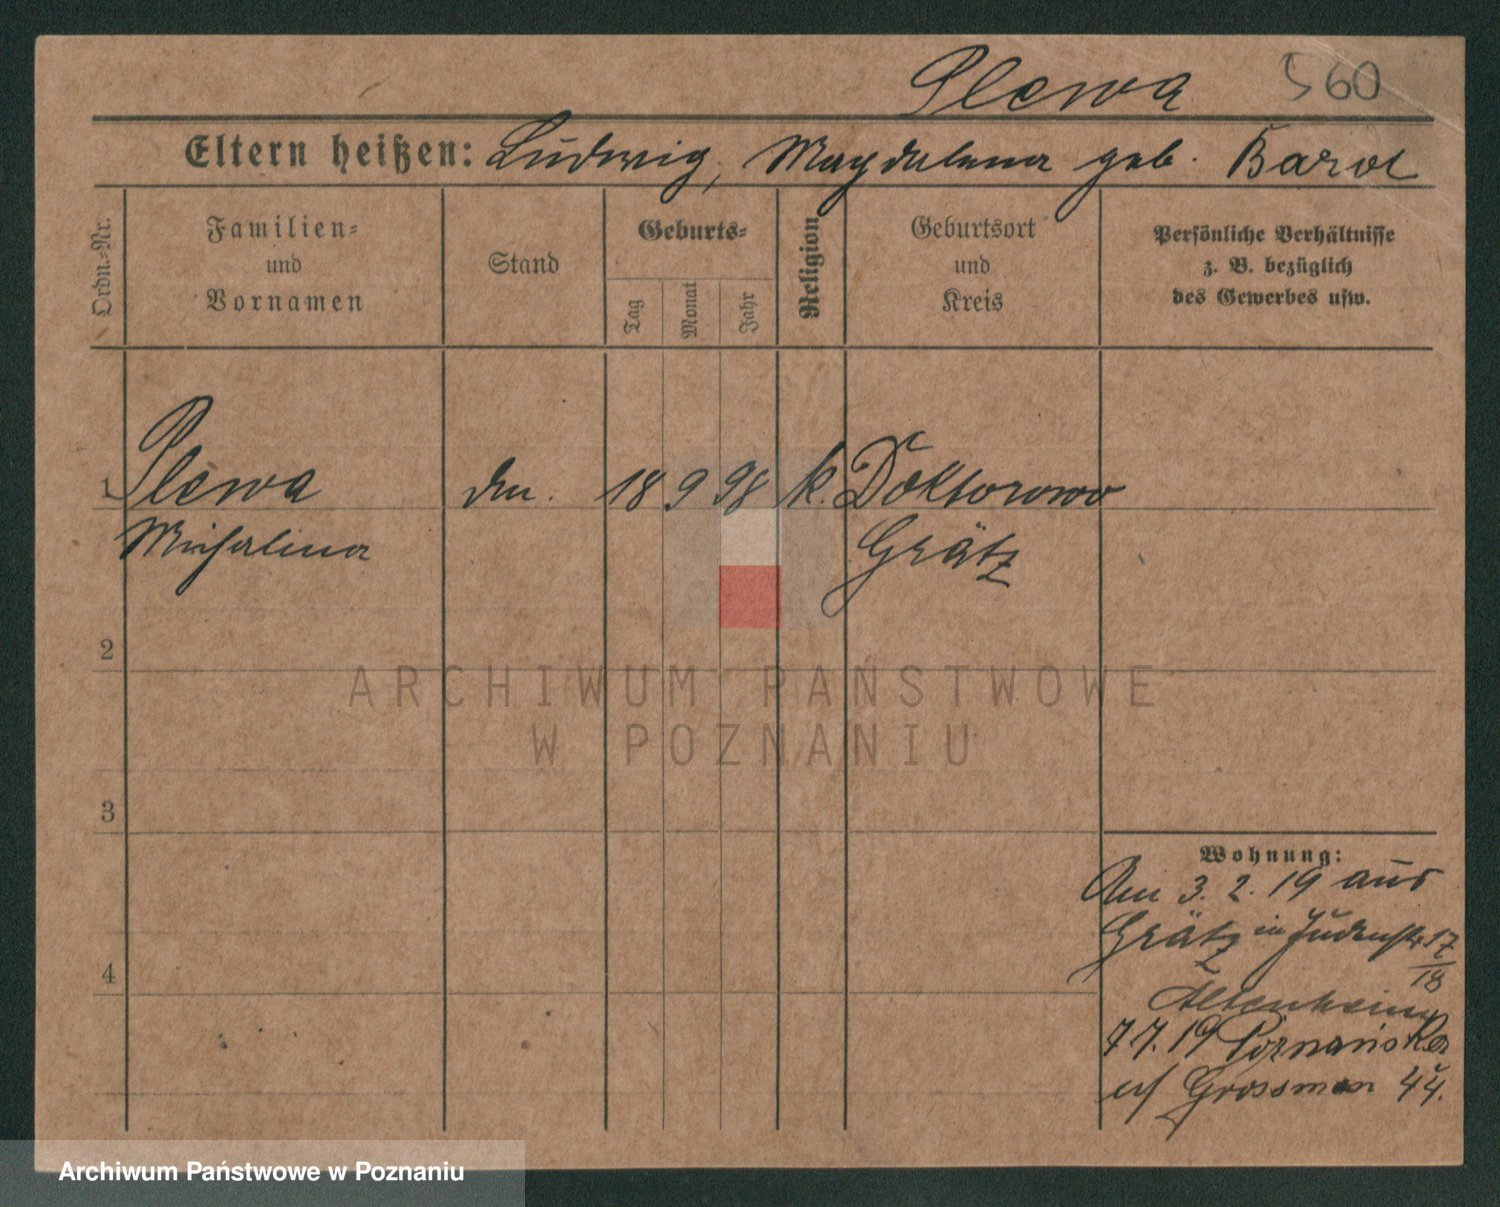 Plewa 560
Eltern heißen: Ludwig, Magdalena geb. Barol
Ordn.-Nr.
Familien-
und
Vornamen
Stand
Geburts-
Tag
Monat
Jahr
Religion
Geburtsort
und
Kreis
Persönliche Verhältnisse
z. B. bezüglich
des Gewerbes usw.
1 Plewa 18 9 98 k. Doktorowo
Michalina Grätz
2
3
4
Wohnung:
Am 3. 2. 19 aus
Grätz in Judenstr. 17
18
Altenheim
7 7. 19
Grossman 44.
ARCHIWUM PAŃSTWOWE
W POZNANIU
Archiwum Państwowe w Poznaniu